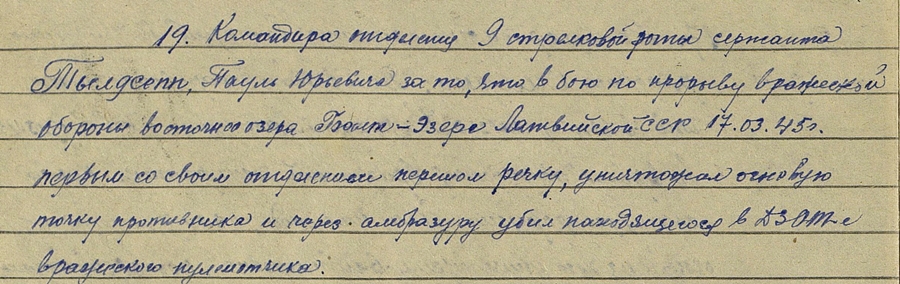 19. Командира отделения 9 стрелковой роты сержанта
Тылдсепп, Пауль Юрьевича за то, что в бою по прорыву вражеской
обороны восточнее озера Балт-Эзерс Латвийской ССР 17.03.45г.
первым со своим отделением перешол речку, уничтожил огневую
точку противника и через амбразуру убил находящегося в ДЗОТ-е
вражеского пулеметчика.